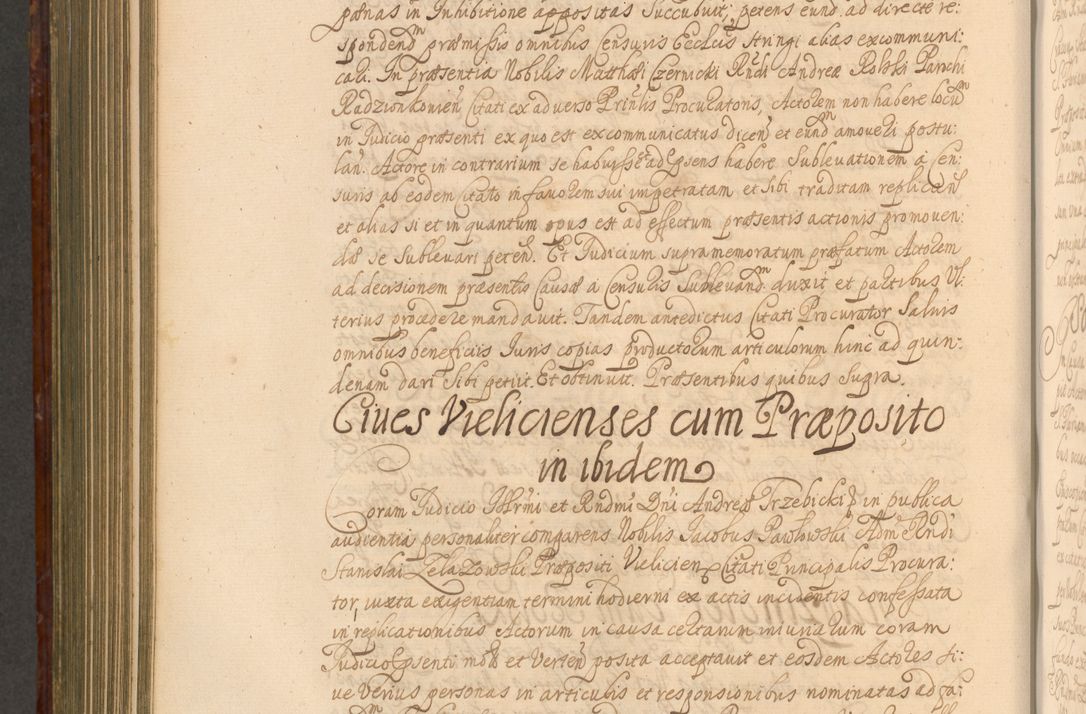 pœnas in Inhibitione appositas Succubuit; petens eund ad directe re:
spondendm præmissis omnibus Censuris Ecclcis stringi alias excommuni:
cari. In præsentia Nobilis Matthæi Czernicki Rndi Andreæ Rolski Parochi
Radzionkovien Citati ex adverso Prinlis Procuratoris, Actorem non habere locum
in Judicio præsenti ex quo est excommunicatus dicen et eundm amoveri postu:
lan. Actore in contrarium se habuisse et ad psens habere Sublevationem a Cen:
suris ab eodem Citato in favorem sui impetratam et sibi traditam replican
et alias si et in quantum opus est ad effectum præsentis actionis promoven:
dæ se Sublevari peten. Et Judicium supramemoratum præfatum Actorem
ad decisionem præsentis Causæ a Censuris Sublevandm duxit et partibus Vl:
terius procedere mandavit. Tandem antedictus Citati Procurator Salvis
omnibus beneficiis Juris copias productorum articulorum hinc ad quin:
denam dari Sibi petiit. Et obtinuit. Præsentibus quibus Supra.
Cives Vielicienses cum Præposito
in ibidem
Coram Judicio Illrmi et Rndmi Dni Andreæ Trzebicki in publica
audientia personaliter comparens Nobilis Jacobus Pawłowski Adm Rndi
Stanislai Zelazowski Præpositi Vielicien Citati Principalis Procura:
tor, iuxta exigentiam termini hodierni ex actis incidentis confessata
in replicationibus Actorum in causa certarum iniuriarum coram
Judicio psenti mot et Verten posita acceptavit et eosdem Actores si:
ve Verius personas in articulis et responsionibus nominatas ad fa: